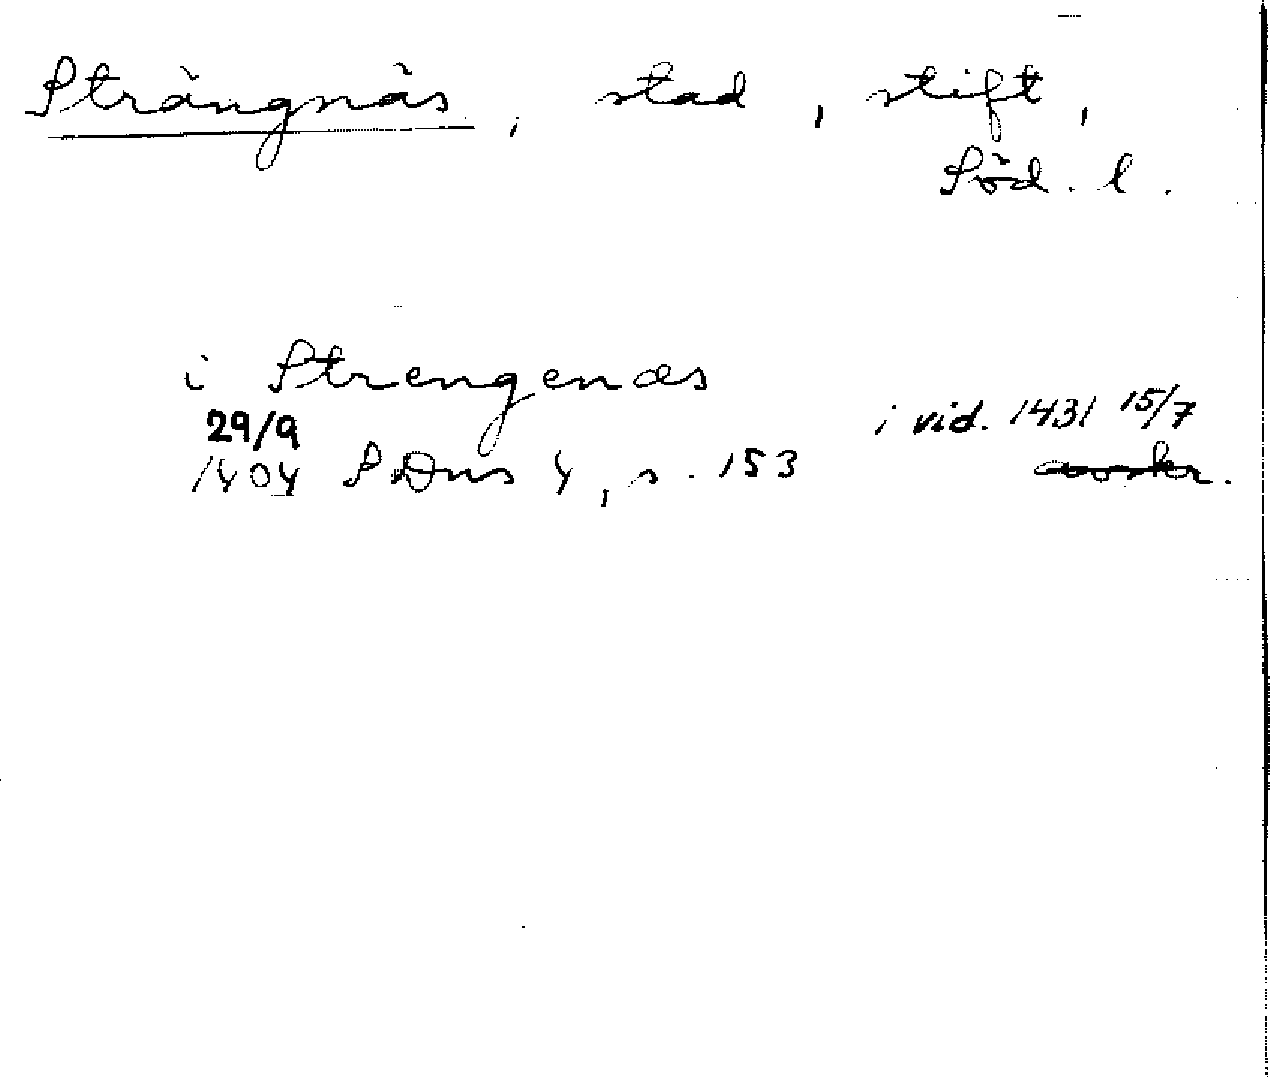 Strängnäs, stad, stift,
Söd. l.
i Strengenæs
29/9
1404 SDns 4, s. 153
i vid. 1431 15/7
avskr.